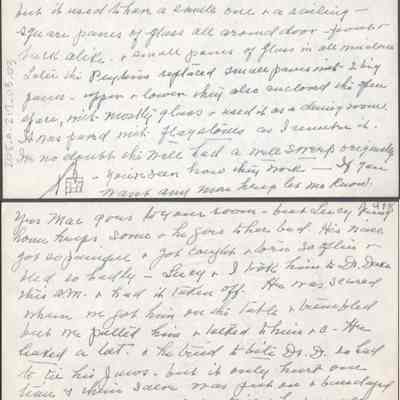 but it used to have a small one & a railing -
square panes of glass all around door - front &
back alike. & small panes of glass in all windows
Later the replaced small panes with 2 big
panes - upper & lower they also enclosed the open
space, with mostly glass & used it as a dining room.
It was paved with flagstones as I remember it.
no doubt the well had a well sweep originally
- you've seen how they work - If you
want any more help let me know.
Mac goes to your room - but Lucy
home helps some & he goes to her bed. His
got so & got caught & torn so often &
bled so badly - Lucy & I took him to Dr.
this A.M. & had it taken off. He was scared
when we got him on the table & trembled
but we petted him & talked to him &c. He
leaked a lot. & he tried to bite Dr. D. so had
to tie his jaws - but it only hurt one
& then salve was put on & bandaged